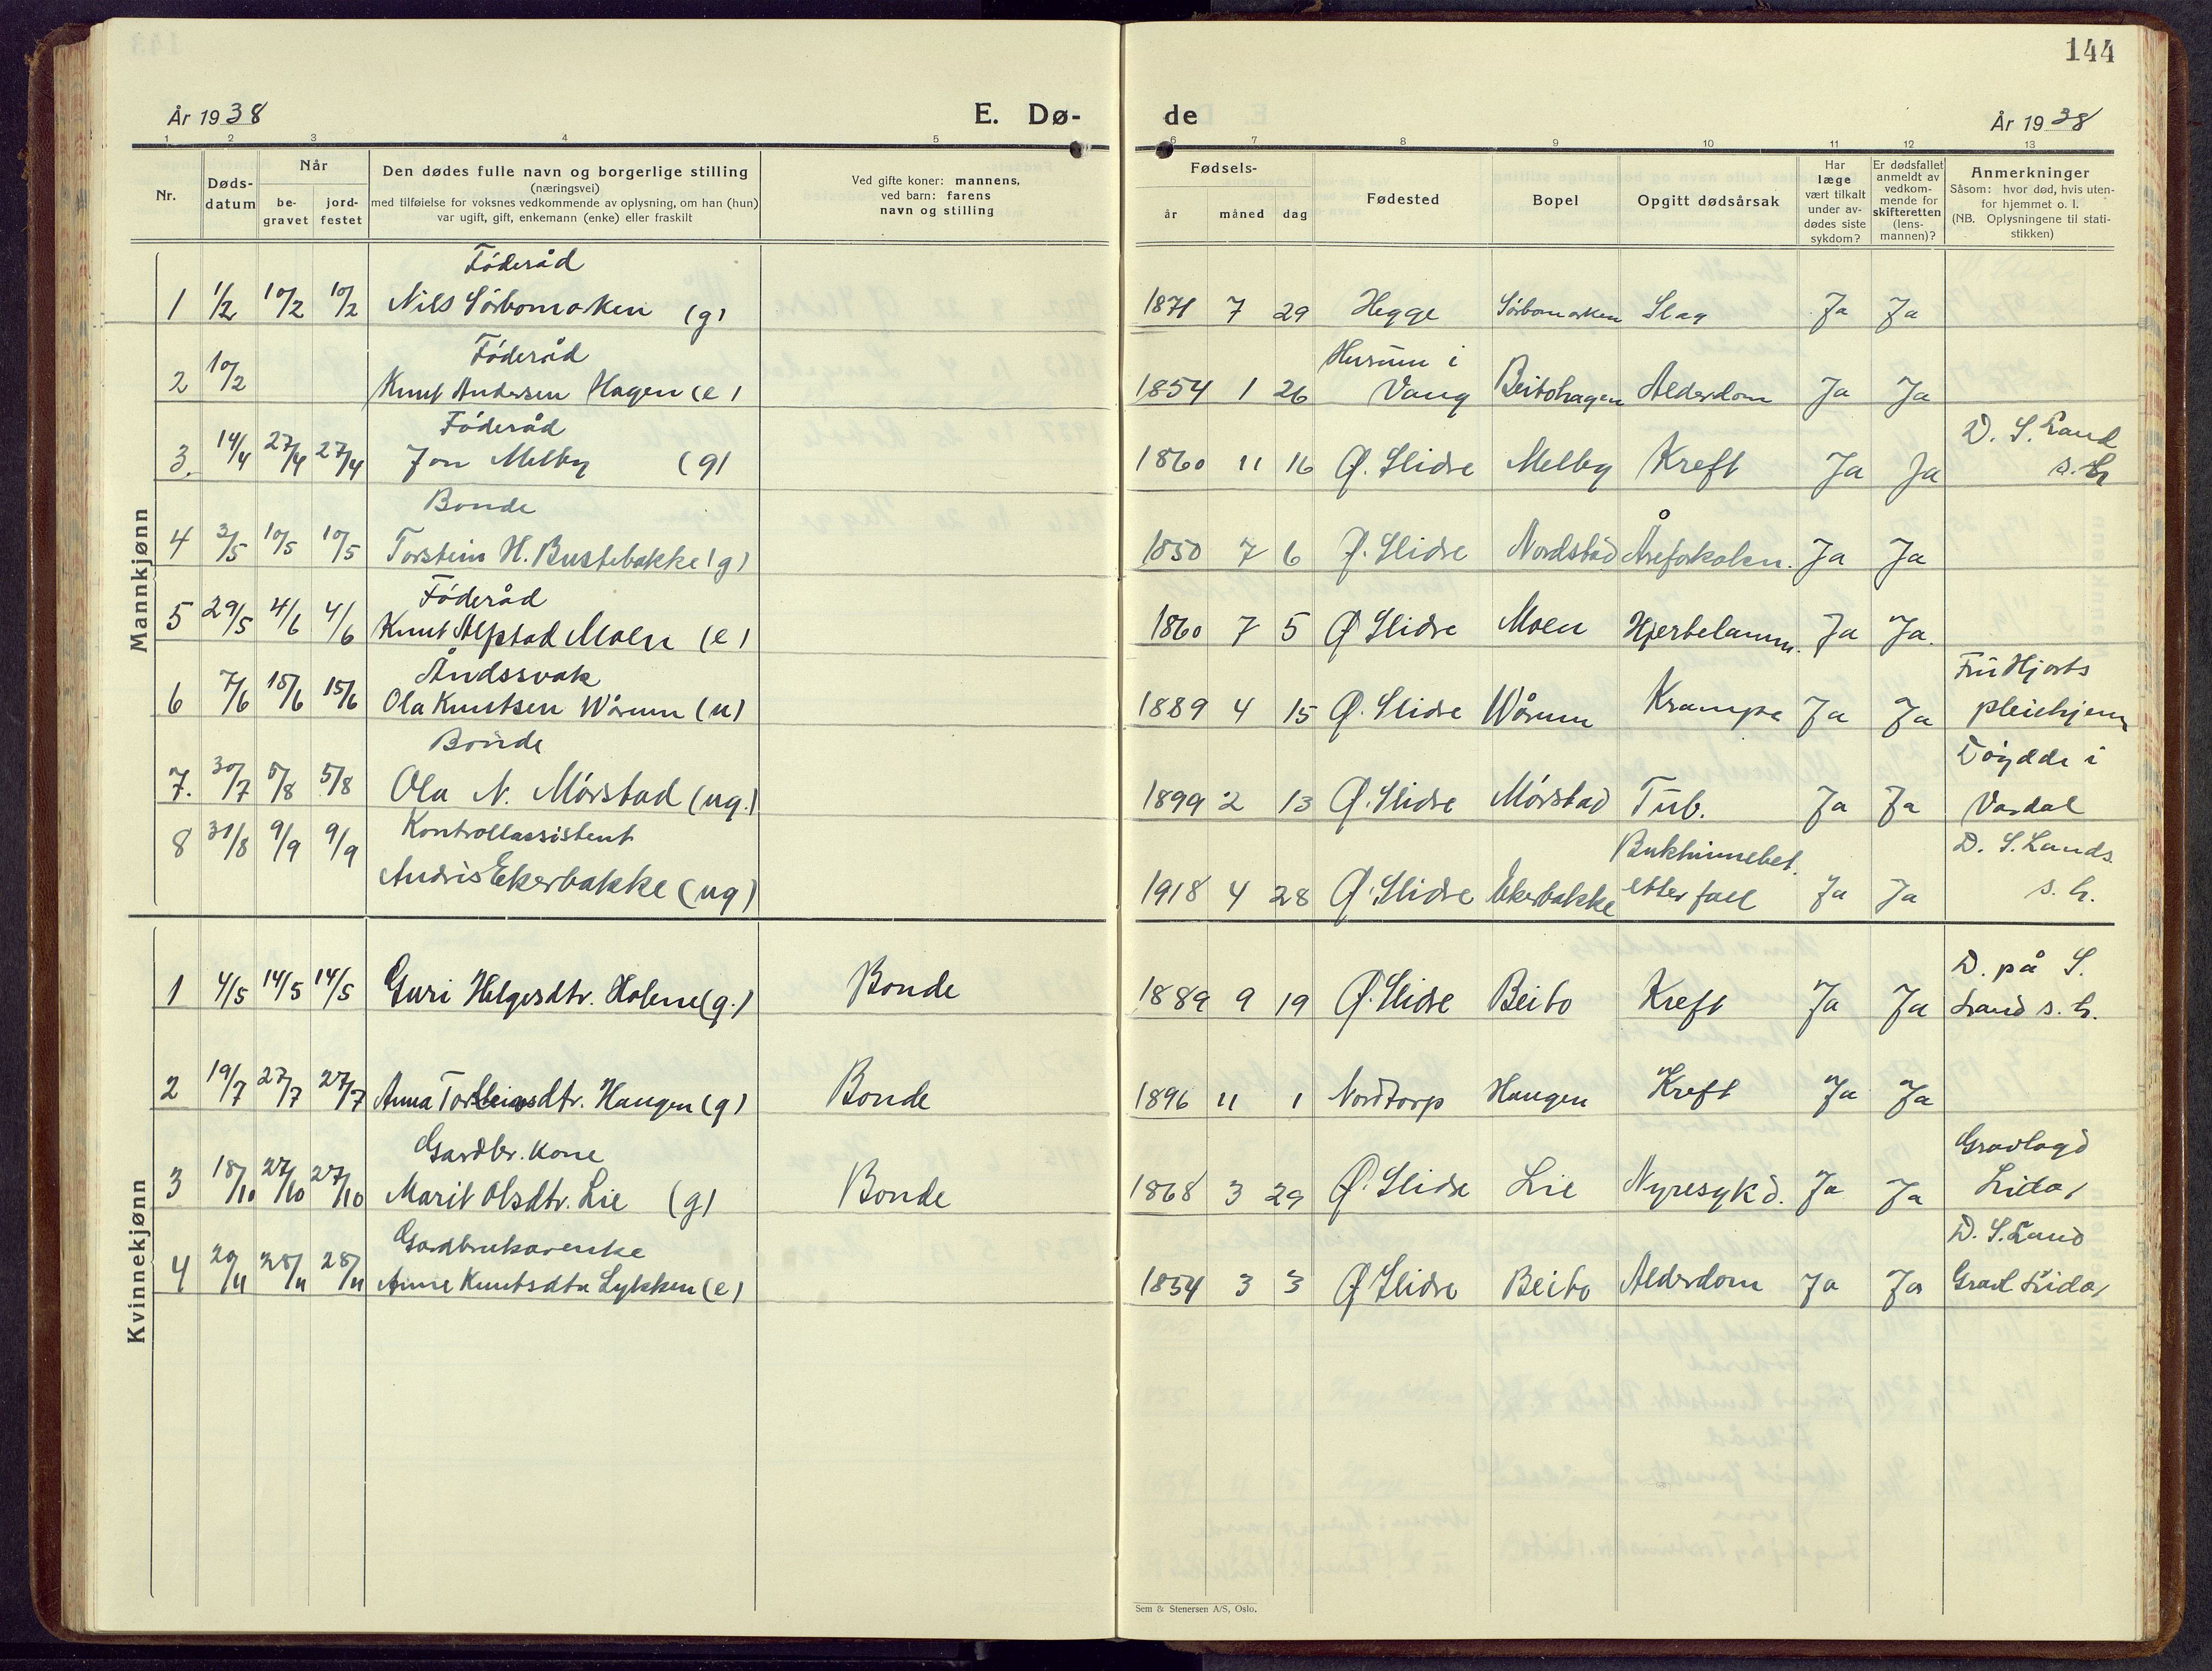 144
År 1938 E. Dø- de År 1938
1 2 3 4 5 6 7 8 9 10 11 12 13
Nr.
Døds-
datum
Når
be-
gravet
jord-
festet
Den dødes fulle navn og borgerlige stilling
(næringsvei)
med tilføielse for voksnes vedkommende av oplysning, om han (hun)
var ugift, gift, enkemann (enke) eller fraskilt
Ved gifte koner: mannens,
ved barn: farens
navn og stilling
Fødsels-
år måned dag
Fødested
Bopel
Opgitt dødsårsak
Har
læge
vært tilkalt
under av-
dødes siste
sykdom?
Er dødsfallet
anmeldt av
vedkom-
mende for
skifteretten
(lens-
mannen)?
Anmerkninger
Såsom: hvor død, hvis uten-
for hjemmet o. l.
(NB. Oplysningene til stati-
stikken)
Mannkjønn
Føderåd
1 1/2 10/2 10/2 Nils Sørbomoken (g) 1871 7 29 Hegge Sørbomoken Slag Ja Ja
Føderåd Husum i
2 10/2 Knut Andersen Hagen (e) 1854 1 26 Vang Beitohagen Alderdom Ja Ja
Føderåd D. S. Land
3. 14/4 27/4 27/4 Jon Melby (g) 1860 11 16 Ø. Slidre Melby Kreft Ja Ja s.h
Bonde
4 3/5 10/5 10/5 Torstein H. Bustebakke (g) 1850 7 6 Ø. Slidre Nordstad Åreforkalkn. Ja Ja
Føderåd
5 29/5 4/6 4/6 Knut Alfstad Moen (e) 1860 7 5 Ø Slidre Moen Hjertelamm. Ja Ja.
Åndssvak Fru Hjorts
6 7/6 15/6 15/6 Ola Knutsen Wårum (u) 1889 4 15 Ø. Slidre Wårum Krampe Ja Ja pleiehjem
Bonde Døydde i
7. 30/7 5/8 5/8 Ola N. Mørstad (ug.) 1899 2 13 Ø. Slidre Mørstad Tub. Ja Ja Vardal
Kontrollassistent Bukhinnebet. D. S. Lands
8 31/8 9/9 9/9 Andris Ekerbakke (ug) 1918 4 28 Ø. Slidre Ekerbakke etter fall Ja Ja s. h.
Kvinnekjønn
D. på S.
1 4/5 14/5 14/5 Guri Helgesdtr. Holene (g.) Bonde 1889 9 19 Ø. Slidre Beito Kreft Ja Ja Land s. h.
2 19/7 27/7 27/7 Anna Torsteinsdtr. Haugen (g) Bonde 1896 11 1 Nordtorp Haugen Kreft Ja Ja
Gardbr. kone Gravlagd
3 18/10 27/10 27/10 Marit Olsdtr. Lie (g) Bonde 1868 3 29 Ø. Slidre Lie Nyresykd. Ja Ja Lidar
Gardbrukarenke D. S. Land
4 20/11 28/11 28/11 Anne Knutsdtr Lykken (e) 1854 3 3 Ø Slidre Beito Alderdom Ja Ja Gravl Lidar
Sem & Stenersen A/S, Oslo.